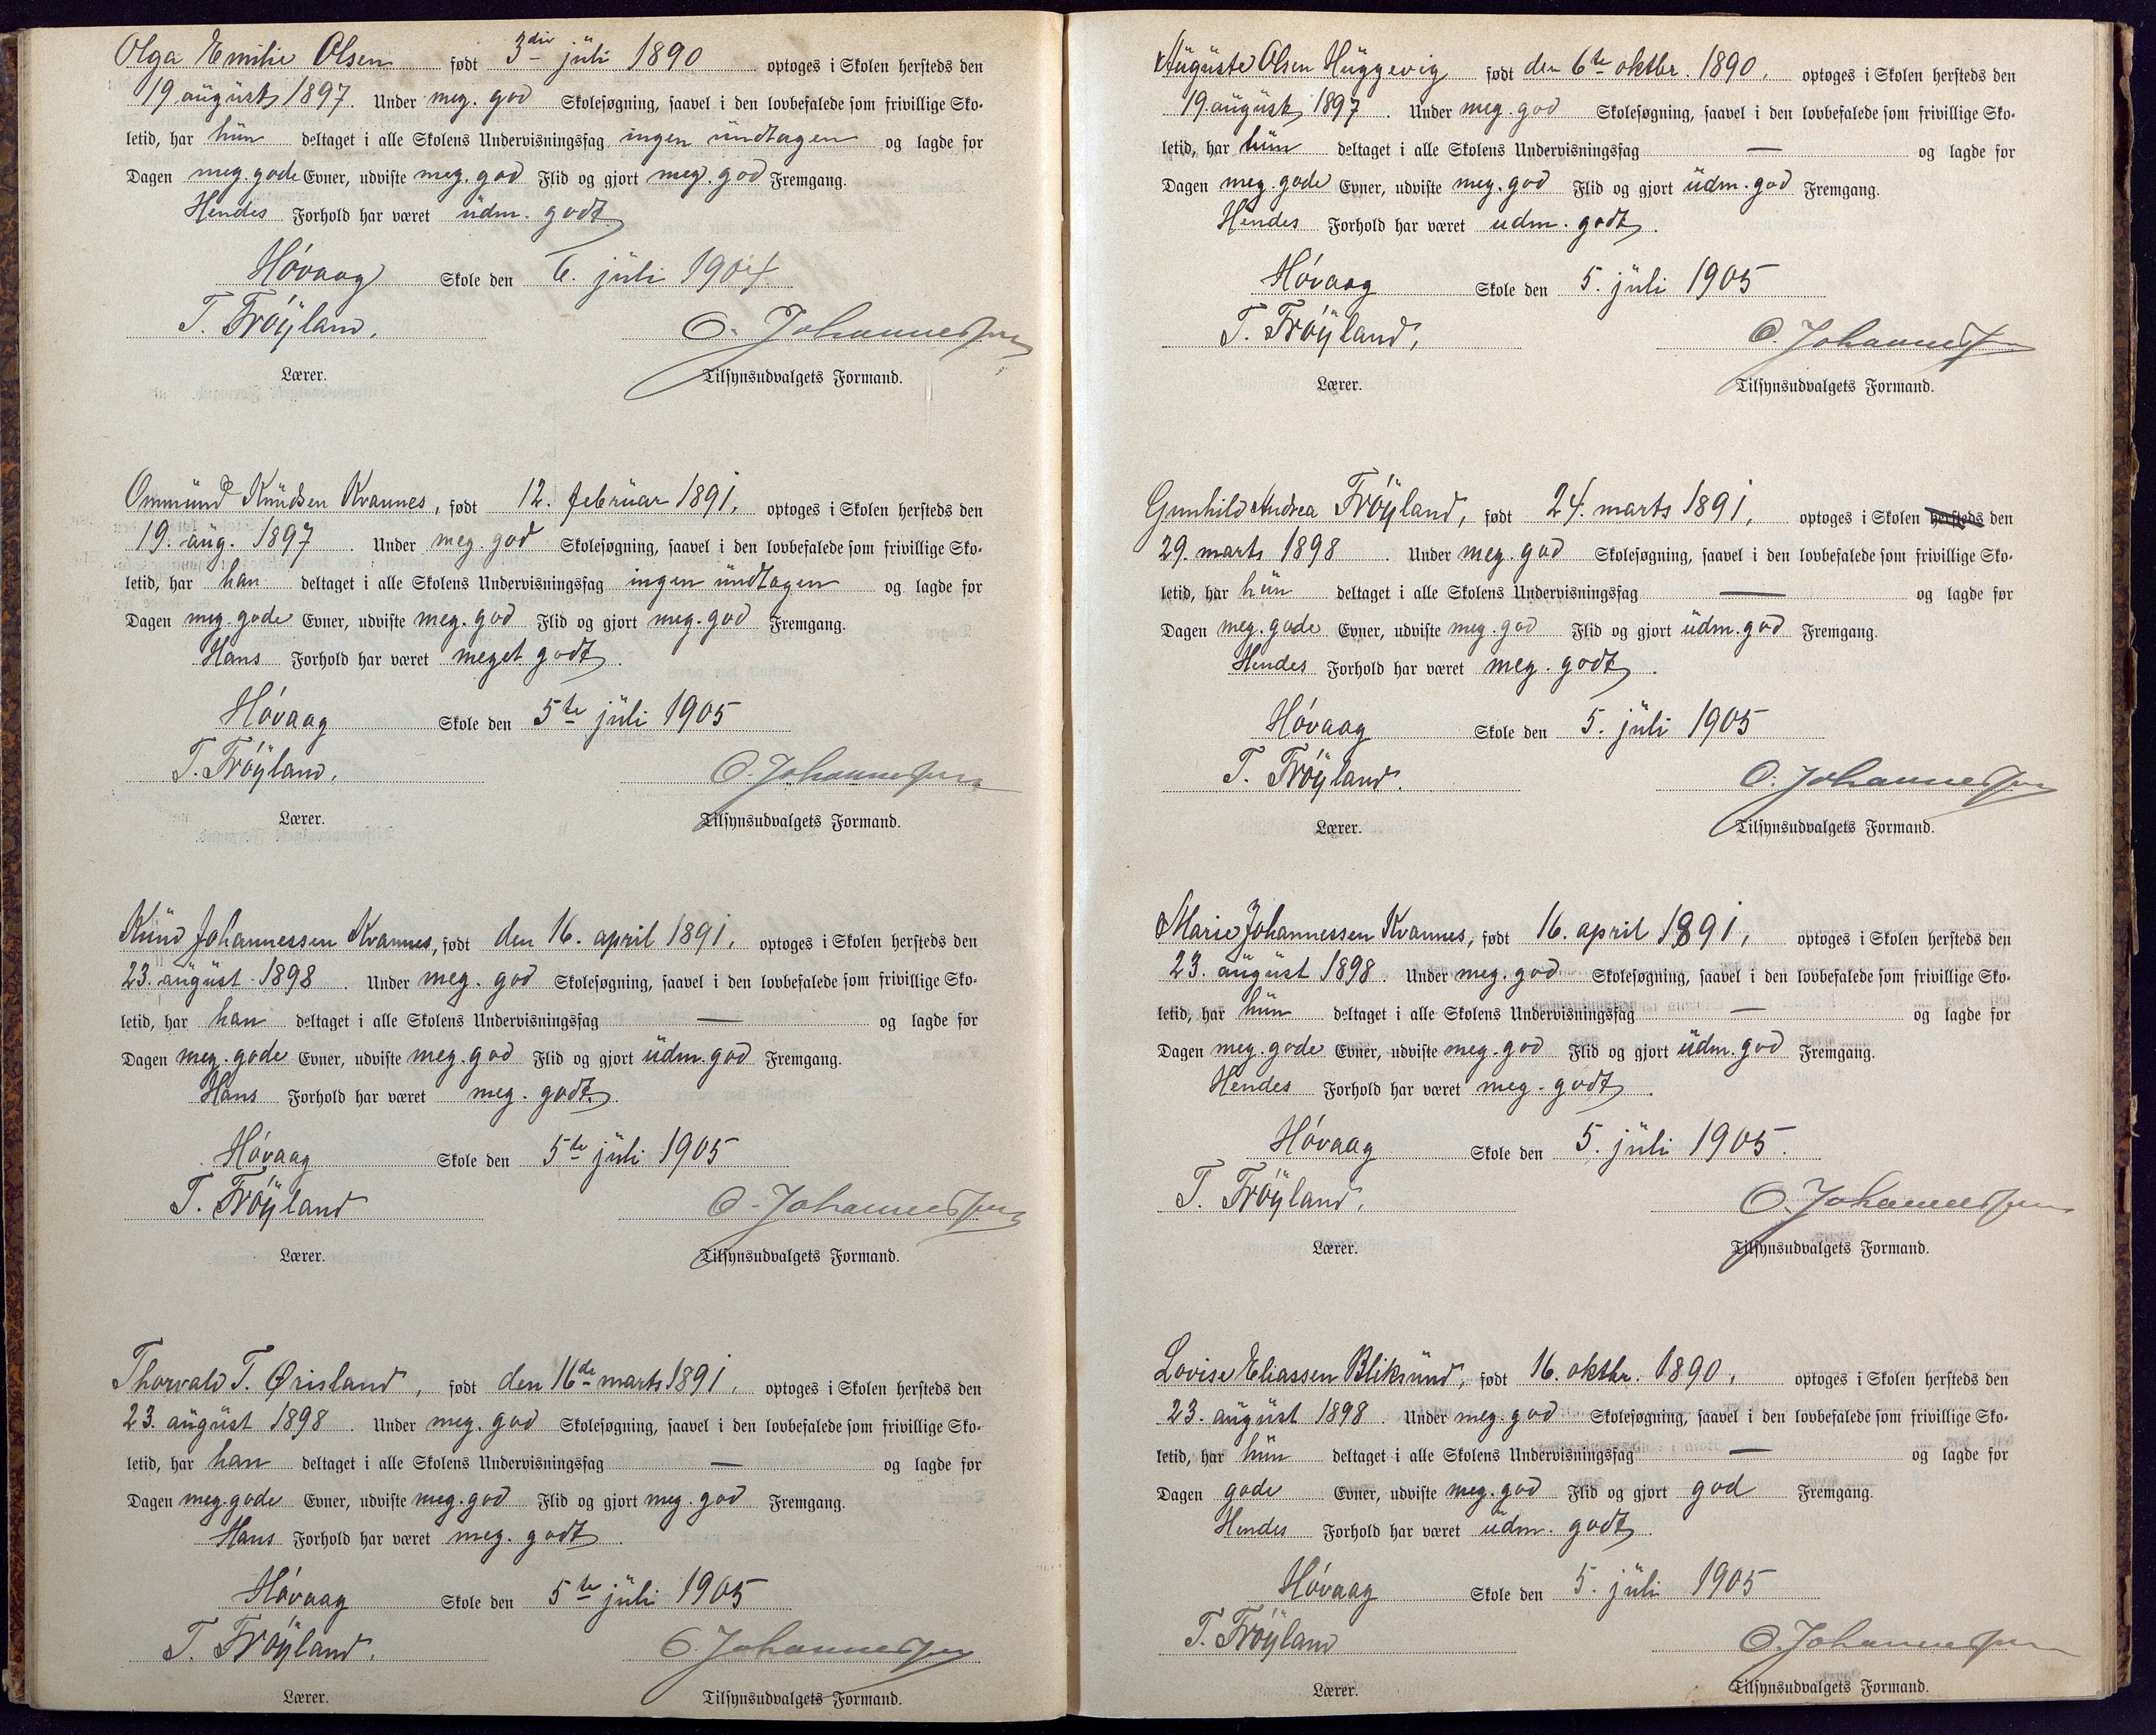 Olga Emilie Olsen født 3die juli 1890 optoges i Skolen hersteds den
19 august 1897. Under meg. god Skolesøgning, saavel i den lovbefalede som frivillige Sko-
letid, har hun deltaget i alle Skolens Undervisningsfag ingen undtagen og lagde for
Dagen meg. gode Evner, udviste meg. god Flid og gjort meg. god Fremgang.
Hendes Forhold har været udm. godt.
Høvaag Skole den 6. juli 1904.
T. Frøyland. O. Johannessen
Lærer. Tilsynsudvalgets Formand.
Ommund Knudsen Kvannes, født 12. februar 1891, optoges i Skolen hersteds den
19. aug. 1897. Under meg. god Skolesøgning, saavel i den lovbefalede som frivillige Sko-
letid, har han deltaget i alle Skolens Undervisningsfag ingen undtagen og lagde for
Dagen meg. gode Evner, udviste meg. god Flid og gjort meg. god Fremgang.
Hans Forhold har været meget godt.
Høvaag Skole den 5te juli 1905
T. Frøyland. O. Johannessen
Lærer. Tilsynsudvalgets Formand.
Knud Johannessen Kvannes, født den 16. april 1891. optoges i Skolen hersteds den
23. august 1898. Under meg. god Skolesøgning, saavel i den lovbefalede som frivillige Sko-
letid, har han deltaget i alle Skolens Undervisningsfag — og lagde for
Dagen meg. gode Evner, udviste meg. god Flid og gjort udm. god Fremgang.
Hans Forhold har været meg. godt.
Høvaag Skole den 5te juli 1905
T. Frøyland O. Johannessen
Lærer. Tilsynsudvalgets Formand.
Thorvald T. Ørisland, født den 16de marts 1891. optoges i Skolen hersteds den
23. august 1898. Under meg. god Skolesøgning, saavel i den lovbefalede som frivillige Sko-
letid, har han deltaget i alle Skolens Undervisningsfag — og lagde for
Dagen meg. gode Evner, udviste meg. god Flid og gjort meg. god Fremgang.
Hans Forhold har været meg. godt.
Høvaag Skole den 5te juli 1905
T. Frøyland. O. Johannessen
Lærer. Tilsynsudvalgets Formand.
Auguste Olsen Huggevig født den 6te oktbr. 1890, optoges i Skolen hersteds den
19. august 1897. Under meg. god Skolesøgning, saavel i den lovbefalede som frivillige Sko-
letid, har hun deltaget i alle Skolens Undervisningsfag — og lagde for
Dagen meg. gode Evner, udviste meg. god Flid og gjort udm. god Fremgang.
Hendes Forhold har været udm. godt.
Høvaag Skole den 5. juli 1905
T. Frøyland, O. Johannessen
Lærer. Tilsynsudvalgets Formand.
Gunhild Andrea Frøyland, født 24. marts 1891, optoges i Skolen hersteds den
29. marts 1898. Under meg. god Skolesøgning, saavel i den lovbefalede som frivillige Sko-
letid, har hun deltaget i alle Skolens Undervisningsfag — og lagde for
Dagen meg. gode Evner, udviste meg. god Flid og gjort udm. god Fremgang.
Hendes Forhold har været meg. godt.
Høvaag Skole den 5. juli 1905
T. Frøyland. O. Johannessen
Lærer. Tilsynsudvalgets Formand.
Marie Johannessen Kvannes, født 16. april 1891, optoges i Skolen hersteds den
23. august 1898. Under meg. god Skolesøgning, saavel i den lovbefalede som frivillige Sko-
letid, har hun deltaget i alle Skolens Undervisningsfag — og lagde for
Dagen meg. gode Evner, udviste meg. god Flid og gjort udm. god Fremgang.
Hendes Forhold har været meg. godt.
Høvaag Skole den 5. juli 1905.
T. Frøyland. O. Johannessen
Lærer. Tilsynsudvalgets Formand.
Lovise Eliassen Bliksund, født 16. oktbr. 1890, optoges i Skolen hersteds den
23. august 1898. Under meg. god Skolesøgning, saavel i den lovbefalede som frivillige Sko-
letid, har hun deltaget i alle Skolens Undervisningsfag — og lagde for
Dagen gode Evner, udviste meg. god Flid og gjort god Fremgang.
Hendes Forhold har været udm. godt.
Høvaag Skole den 5. juli 1905
T. Frøyland O. Johannessen
Lærer. Tilsynsudvalgets Formand.